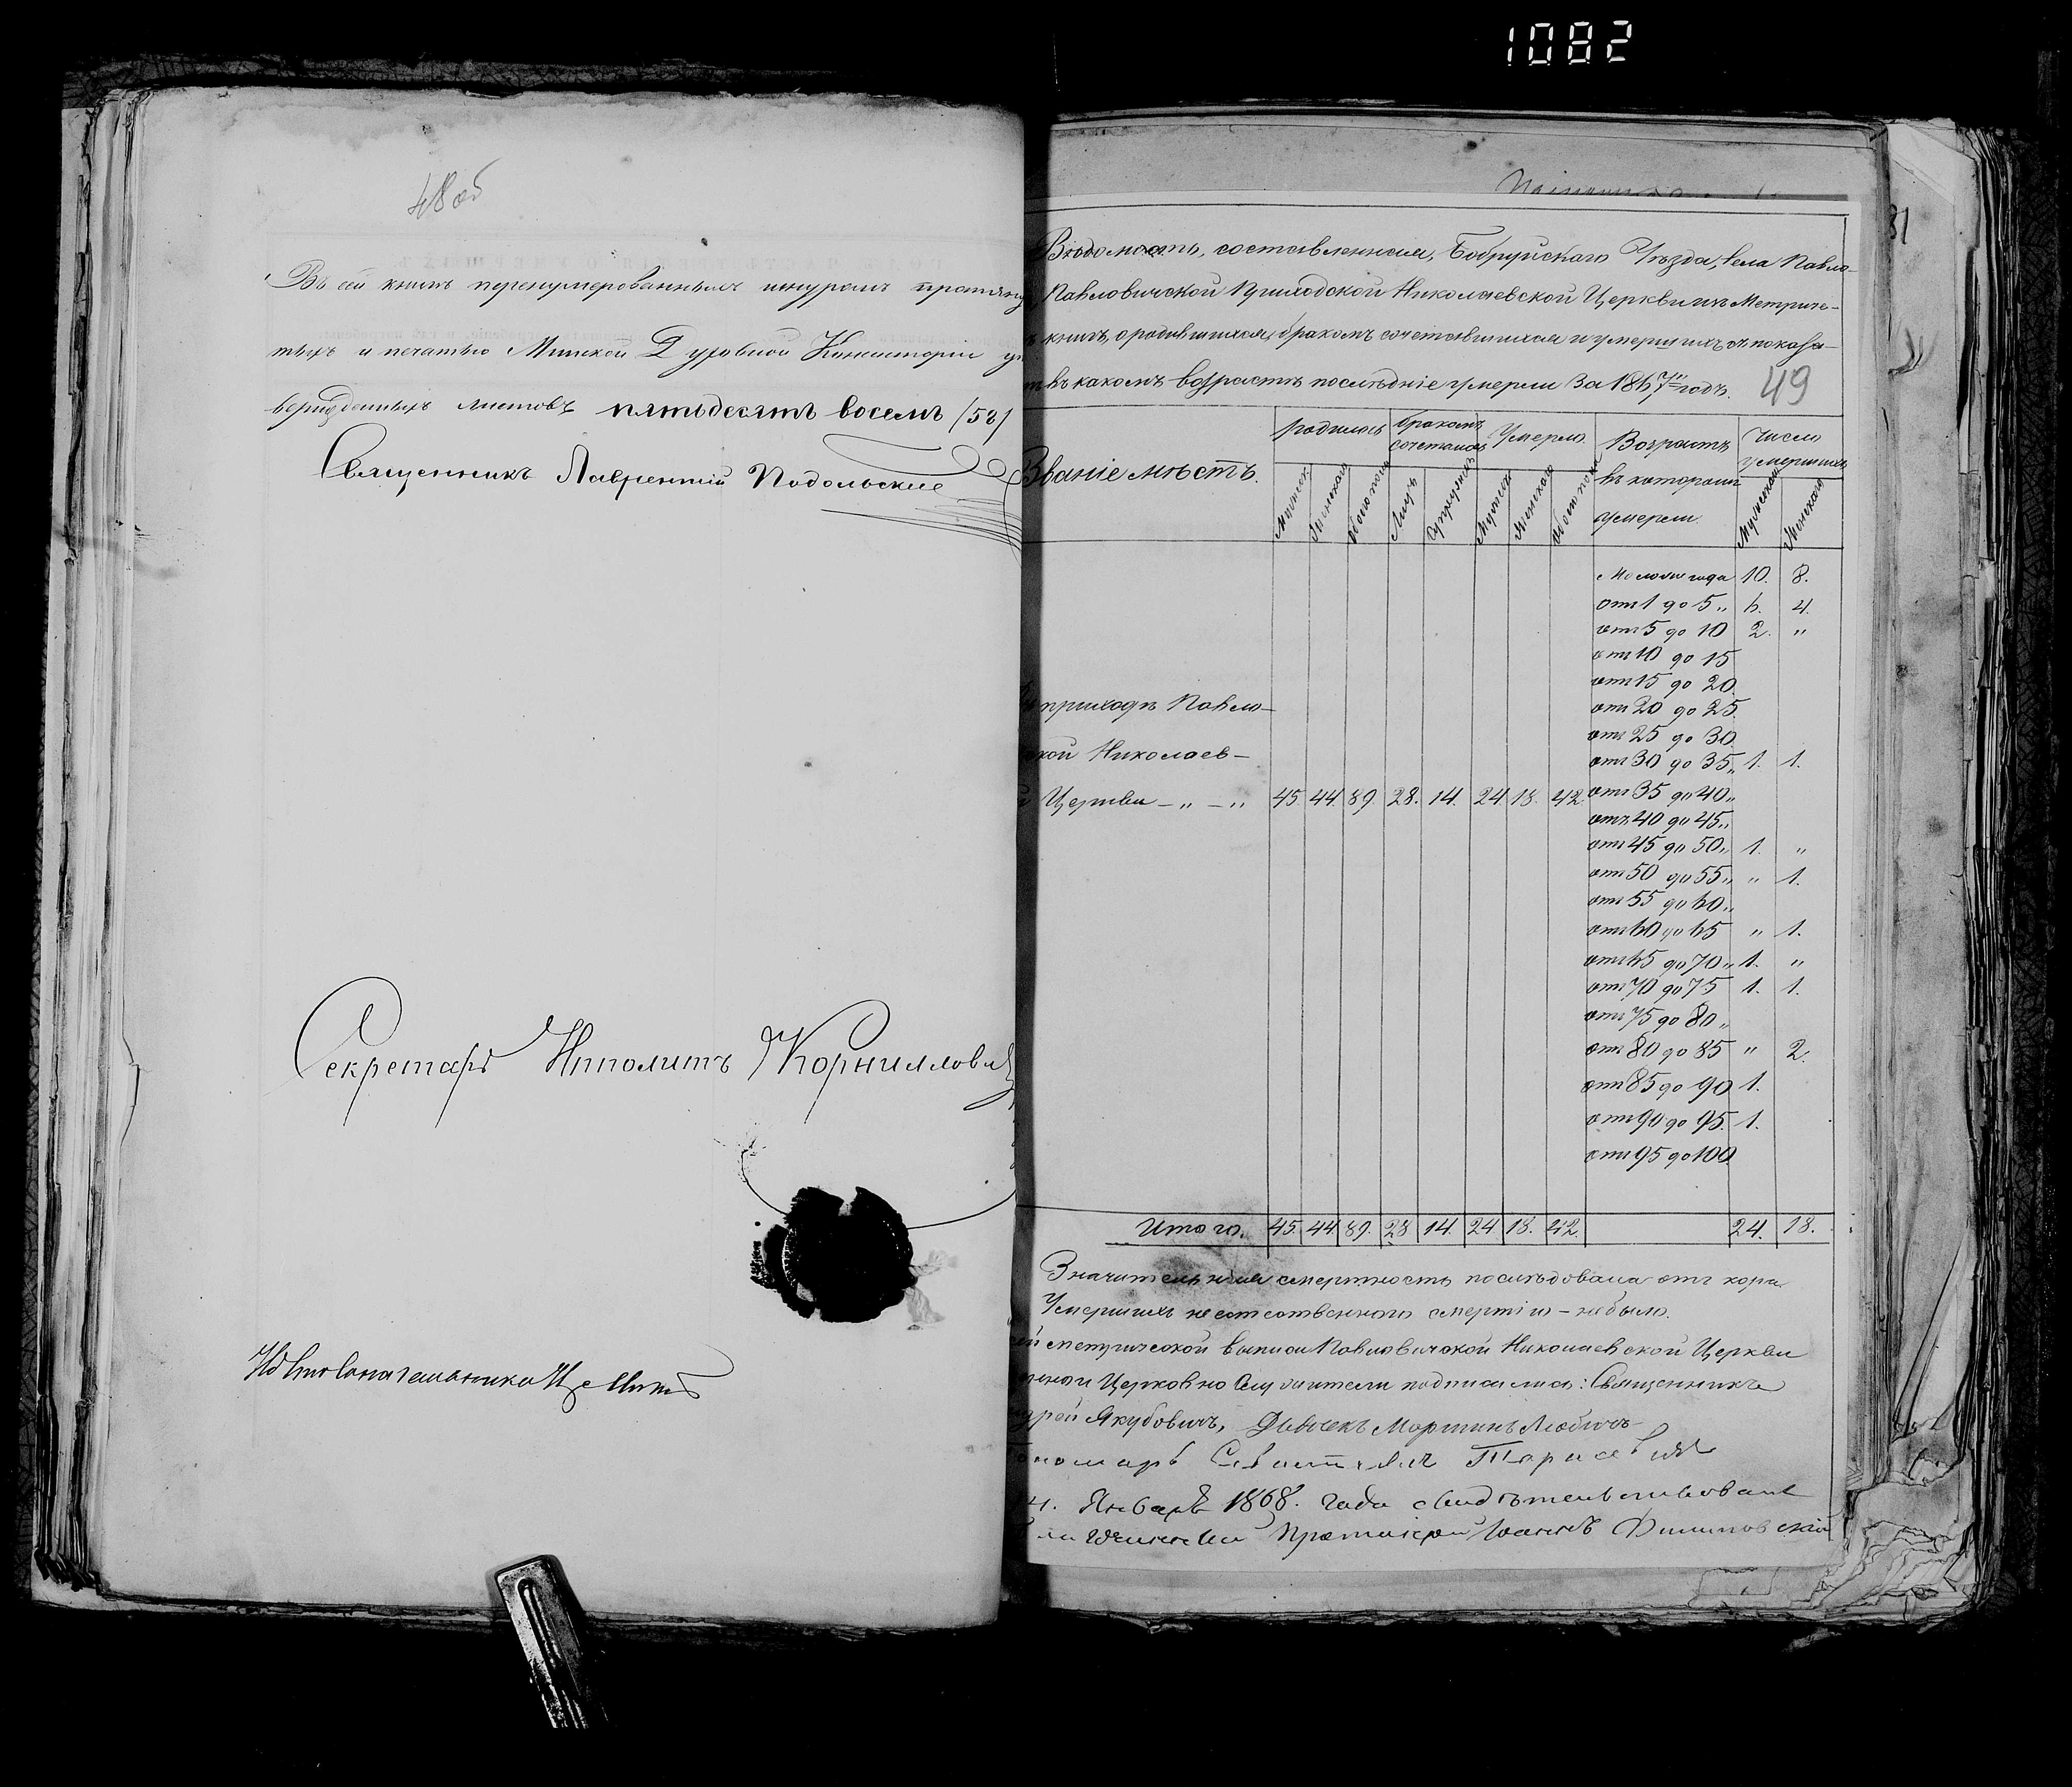 1082
48 об
Въ сей книгѣ перенумерованныхъ шнуромъ протяну
тыхъ и печатью Минской Духовной Консисторіи ут
вержденныхъ листовъ пятьдесятъ восемь /58/
Священникъ Лаврентій Подольскій
Секретарь Ипполитъ Корниллови
81
Вѣдомость, составленная, Бобруйскаго Уѣзда, села Павло-
Павловичской Приходской Николаевской Церкви изъ Метриче-
книгъ, о родившихся, бракомъ сочетавшихся и умершихъ съ показа-
въ какомъ возрастѣ послѣдніе умерли за 1867й годъ. 49
Званіе мѣстъ. Родилось Бракомъ сочеталось Умерло Возрастъ въ которомъ умерли Число умершихъ
Мужеска Женска Обоего пола Лицъ Супружес Мужеска Женска Обоего пола Мужескаго Женскаго
Моложе года 10. 8.
отъ 1 до 5 „ 6. 4.
отъ 5 до 10 2. „
отъ 10 до 15
отъ 15 до 20.
приходѣ Павло- отъ 20 до 25.
отъ 25 до 30.
ской Николаев- отъ 30 до 35 „ 1. 1.
Церкви - „ - „ 45. 44. 89. 28. 14. 24 18. 42. отъ 35 до 40 „
отъ 40 до 45 „
отъ 45 до 50 „ 1. „
отъ 50 до 55 „ „ 1.
отъ 55 до 60 „
отъ 60 до 65 „ 1.
отъ 65 до 70 „ 1. „
отъ 70 до 75 1. 1.
отъ 75 до 80 „
отъ 80 до 85 „ 2.
отъ 85 до 90 1.
отъ 90 до 95. 1.
отъ 95 до 100
Итого. 45. 44. 89. 28 14. 24 18. 42. 24. 18.
Значительная смертность послѣдовала отъ кора
Умершихъ не естественною смертію - не было.
ей метрической выписи Павловичской Николаевской Церкви
Церковно Служители подписались: Священникъ
дрей Якубовичъ, Дьячекъ Мартинъ
ономарь Тарасевичъ
4. Января 1868. года свидѣтельствовалъ
Протоіерей Іоаннъ